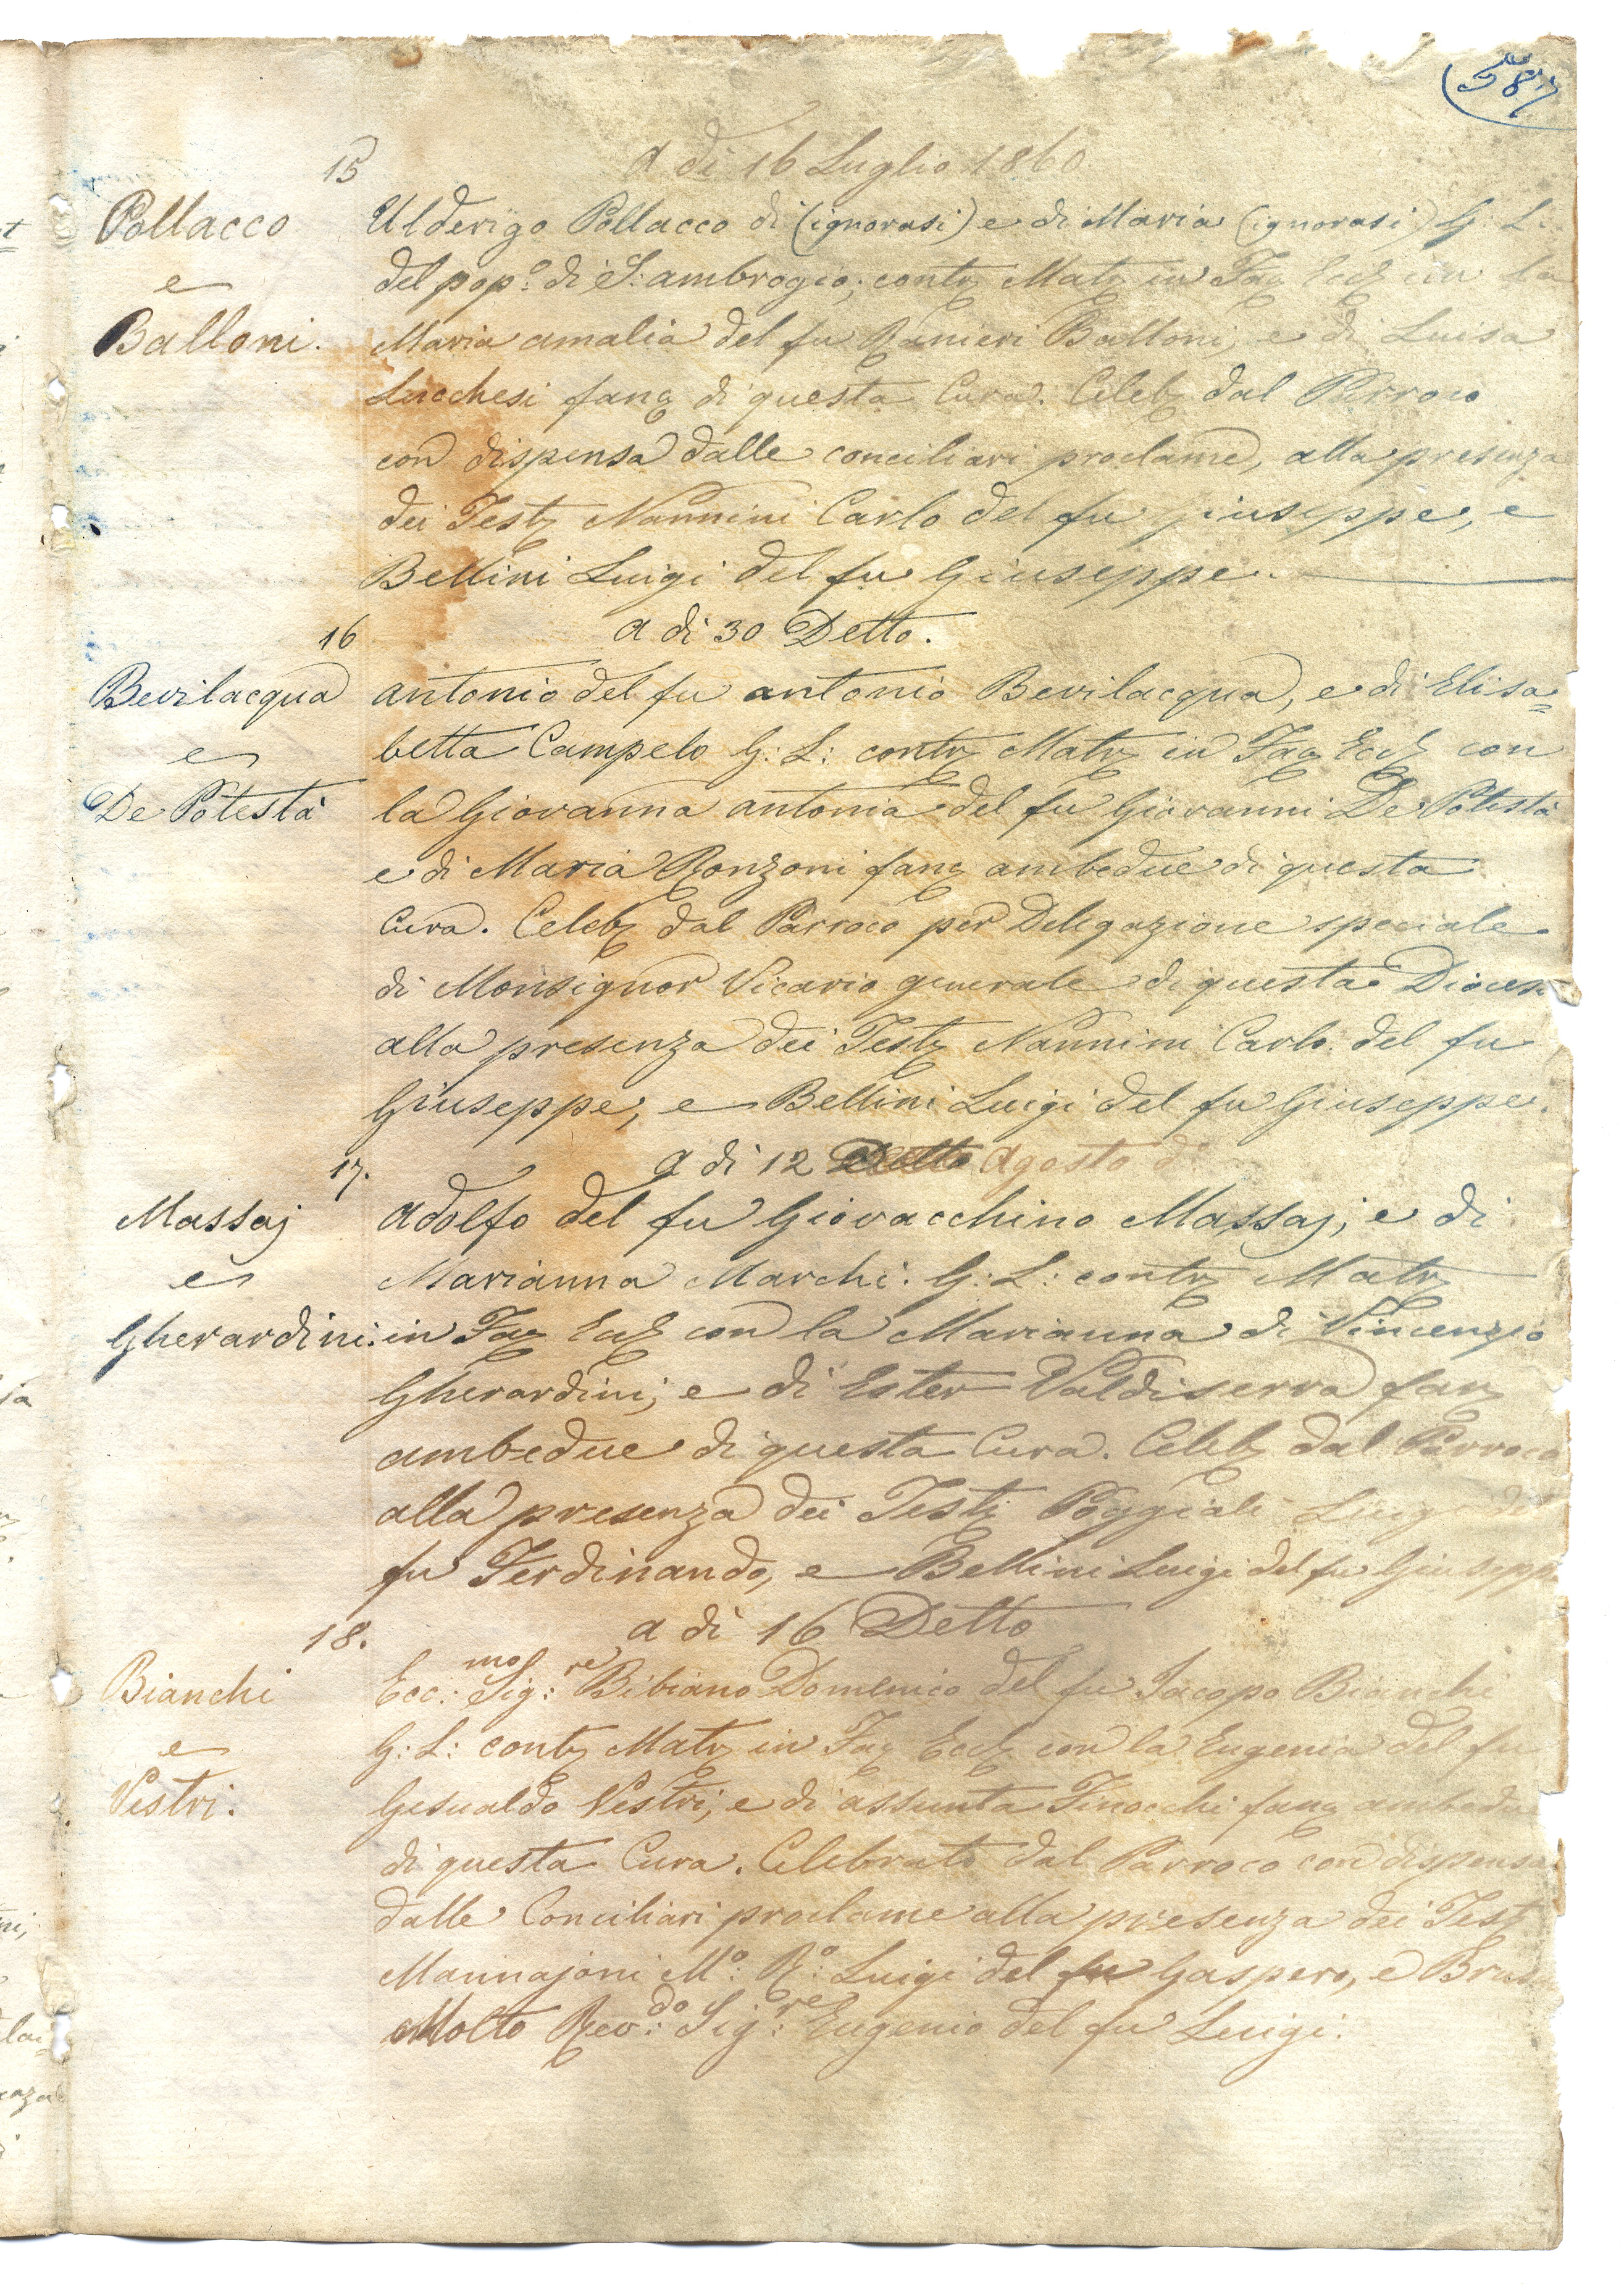 (587)
15 a dì 16 Luglio 1860
Pollacco Ulderigo Pollacco di (ignorasi) e di Maria (ignorasi) G: L:
e del pop.º di S. ambrogio; contr Matr in Fac Eccl con la
Balloni. Maria amalia del fu Ranieri Balloni, e di Luisa
Lucchesi fanc di questa Cura. Celeb dal Parroco
con dispensa dalle conciliari proclame, alla presenza
dei Test Nannini Carlo del fu giuseppe, e
Bellini Luigi del fu Giuseppe.
16 a dì 30 Detto.
Bevilacqua antonio del fu antonio Bevilacqua, e di Elisa=
e betta Campelo G: L: contr Matr in Fac Eccl con
De Potestà la Giovanna antonia del fu Giovanni De Potestà
e di Maria Ronzoni fanc ambedue di questa
Cura. Celeb dal Parroco per Delegazione speciale
di Monsignor Vicario generale di questa Diocesi
alla presenza dei Test Nannini Carlo del fu
Giuseppe, e Bellini Luigi del fu Giuseppe.
17. a dì 12 Detto Agosto dº
Massaj adolfo del fu Giovacchino Massaj, e di
e Marianna Marchi. G: L: contr Matr
Gherardini. in Fac Eccl con la Marianna di Vincenzio
Gherardini, e di Ester Valdiserra fanc
ambedue di questa Cura. Celeb dal Parroco
alla presenza dei Test Poggiali Luigi del
fu Ferdinando, e Bellini Luigi del fu Giuseppe
18. a dì 16 Detto
Bianchi Ecc:mo Sig:re Bibiano Domenico del fu Jacopo Bianchi
e G: L: contr Matr in Fac Eccl con la Eugenia del fu
Vestri. Gesualdo Vestri, e di assunta Finocchi fanc ambedue
di questa Cura. Celebrato dal Parroco con dispensa
dalle Conciliari proclame alla presenza dei Test
Mannajoni Mº: Rº: Luigi del fu Gaspero, e
Molto Rev:do Sig:re Eugenio del fu Luigi.